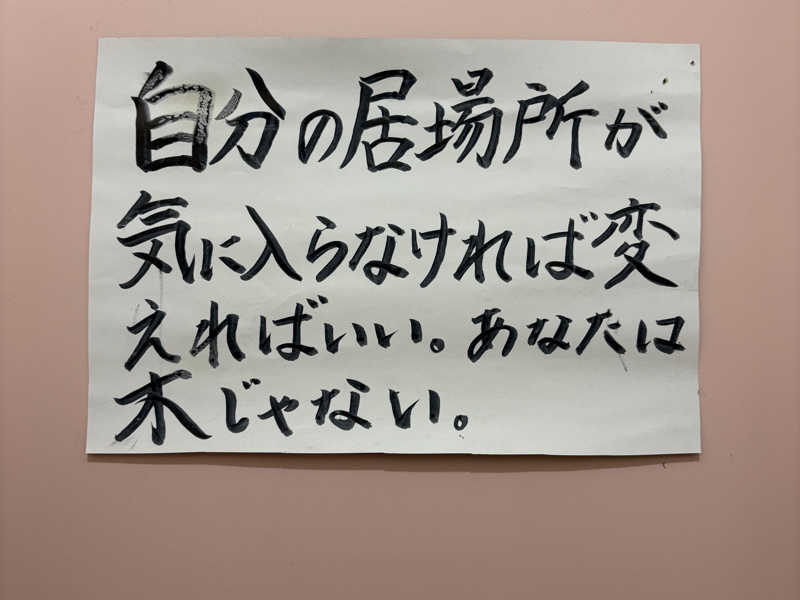 自分の居場所が
気に入らなければ変
えればいい。あなたは
木じゃない。